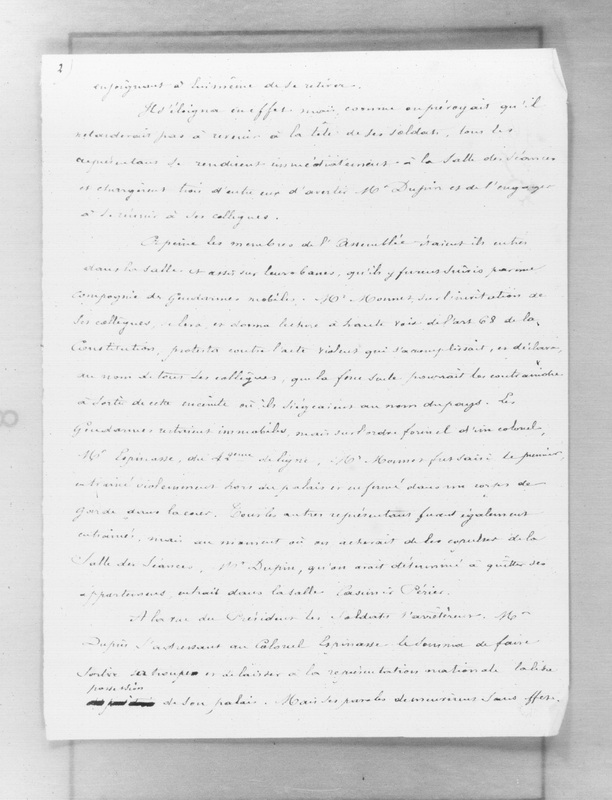 2
enjoignant à lui même de se retirer.
Il s'éloigna en effet mais, comme on prévoyait qu'il
retarderait pas à revenir à la tête de ses soldats, tous les
représentans se rendirent immédiatement à la Salle des Séances
et chargèrent trois d'entre eux d'avertir Mr Dupin et de l'engager
à se réunir à ses collègues.
A peine les membres de l'Assemblée étaient ils entrés
dans la salle et assis sur leurs bancs, qu'ils y furent suivis, par une
compagnie de Gendarmes mobiles. Mr Monnet, sur l'invitation de
ses collègues, se leva et donna lecture à haute voix de l'art 68 de la
Constitution, protesta contre l'acte violent qui s'accomplissait, et déclara,
au nom de tous ses collègues, que la force seule pourrait les contraindre
à sortir de cette enceinte où ils siégeaient au nom du pays. Les
Gendarmes restèrent immobiles, mais sur l'ordre formel d'un colonel,
Mr Espinasse, du 42eme de ligne, Mr Monnet fut saisi le premier,
entraîné violemment hors du palais et enfermé dans un corps de
garde dans la cour. Tous les autres représentans furent également
entraînés, mais au moment où on achevait de les expulser de la
Salle des Séances, Mr Dupin, qu'on avait déterminé à quitter ses
appartemens, entrait dans la salle Casimir Périer.
A la vue du Président les Soldats s'arrêtèrent. Mr
Dupin s'adressant au Colonel Espinasse le somma de faire
sortir sa troupe et de laisser à la représentation nationale la libre
possession
de son palais. Mais ses paroles demeurèrent sans effet.